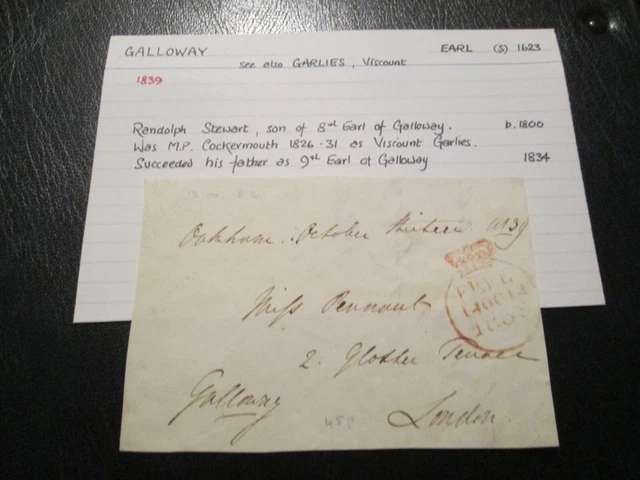 GALLOWAY EARL (S) 1623
see also GARLIES, Viscount
1839
Randolph Stewart, son of 8th Earl of Galloway. b. 1800
Was M.P. Cockermouth 1826-31 as Viscount Garlies.
Succeeded his father as 9th Earl of Galloway 1834
Oakham October thirteen 1839
Miss Pennant
2. Gloster Terrace
Galloway London
FREE
14 OC 14
1839